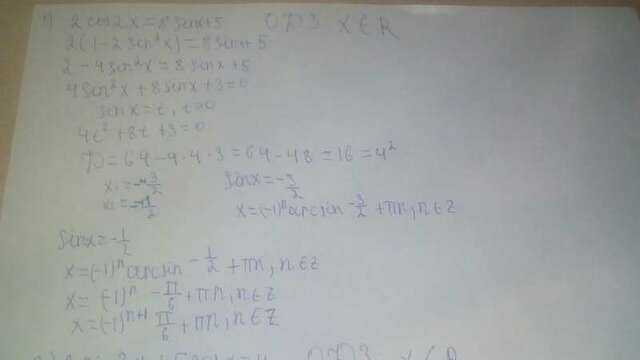 1) 2 cos2x = 8 sinx + 5 ОДЗ x ∈ R
2(1 - 2 sin²x) = 8 sinx + 5
2 - 4 sin²x = 8 sinx + 5
4 sin²x + 8 sinx + 3 = 0
sinx = t, t=0
4t² + 8t + 3 = 0
D = 64 - 4·4·3 = 64 - 48 = 16 = 4²
x₁ = -3/2 sinx = -3/2
x₂ = -1/2 x = (-1)ⁿ arcsin -3/2 + πn, n ∈ Z
sinx = -1/2
x = (-1)ⁿ arcsin -1/2 + πn, n ∈ Z
x = (-1)ⁿ -π/6 + πn, n ∈ Z
x = (-1)ⁿ⁺¹ π/6 + πn, n ∈ Z
ОДЗ: x ∈ R